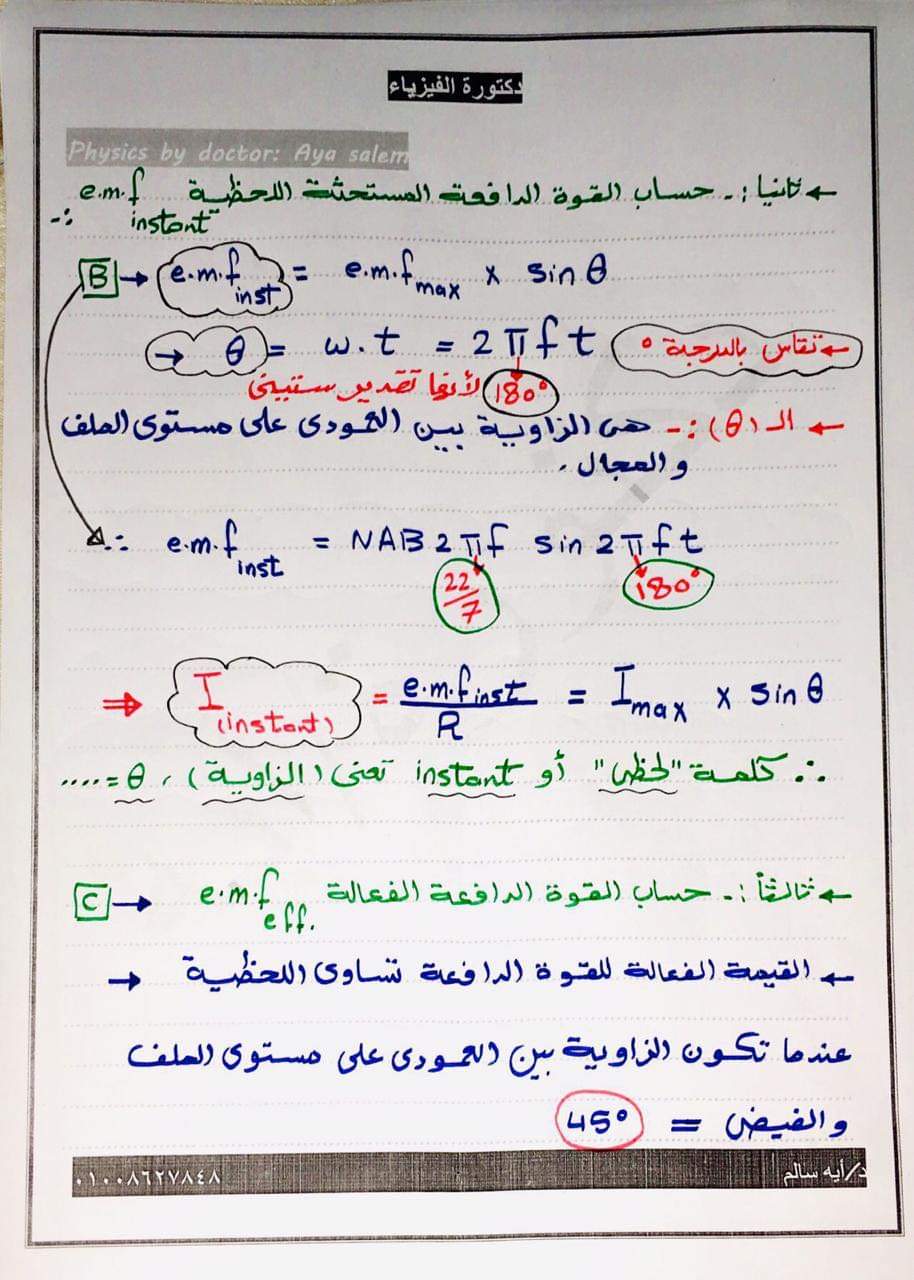 دكتورة الفيزياء
Physics by doctor: Aya salem
← ثانيا :- حساب القوة الدافعة المستحثة اللحظية e.m.f instant :-
B → e.m.f inst = e.m.f max × sin θ
→ θ = ω.t = 2 π f t ← تقاس بالدرجة °
180° لأنها تقدير ستينى
← الـ (θ) :- هى الزاوية بين العمودى على مستوى الملف
والمجال .
∴ e.m.f inst = NAB 2 π f sin 2 π f t
22/7 180°
⇒ I (instant) = e.m.f inst / R = I max × sin θ
∴ كلمة "لحظى" أو instant تعنى (الزاوية) ، θ = ....
C → ← ثالثاً :- حساب القوة الدافعة الفعالة e.m.f eff.
← القيمة الفعالة للقوة الدافعة تساوى اللحظية →
عندما تكون الزاوية بين العمودى على مستوى الملف
والفيض = 45°
د/أيه سالم ٠١٠٠٨٦٢٧٨٤٨